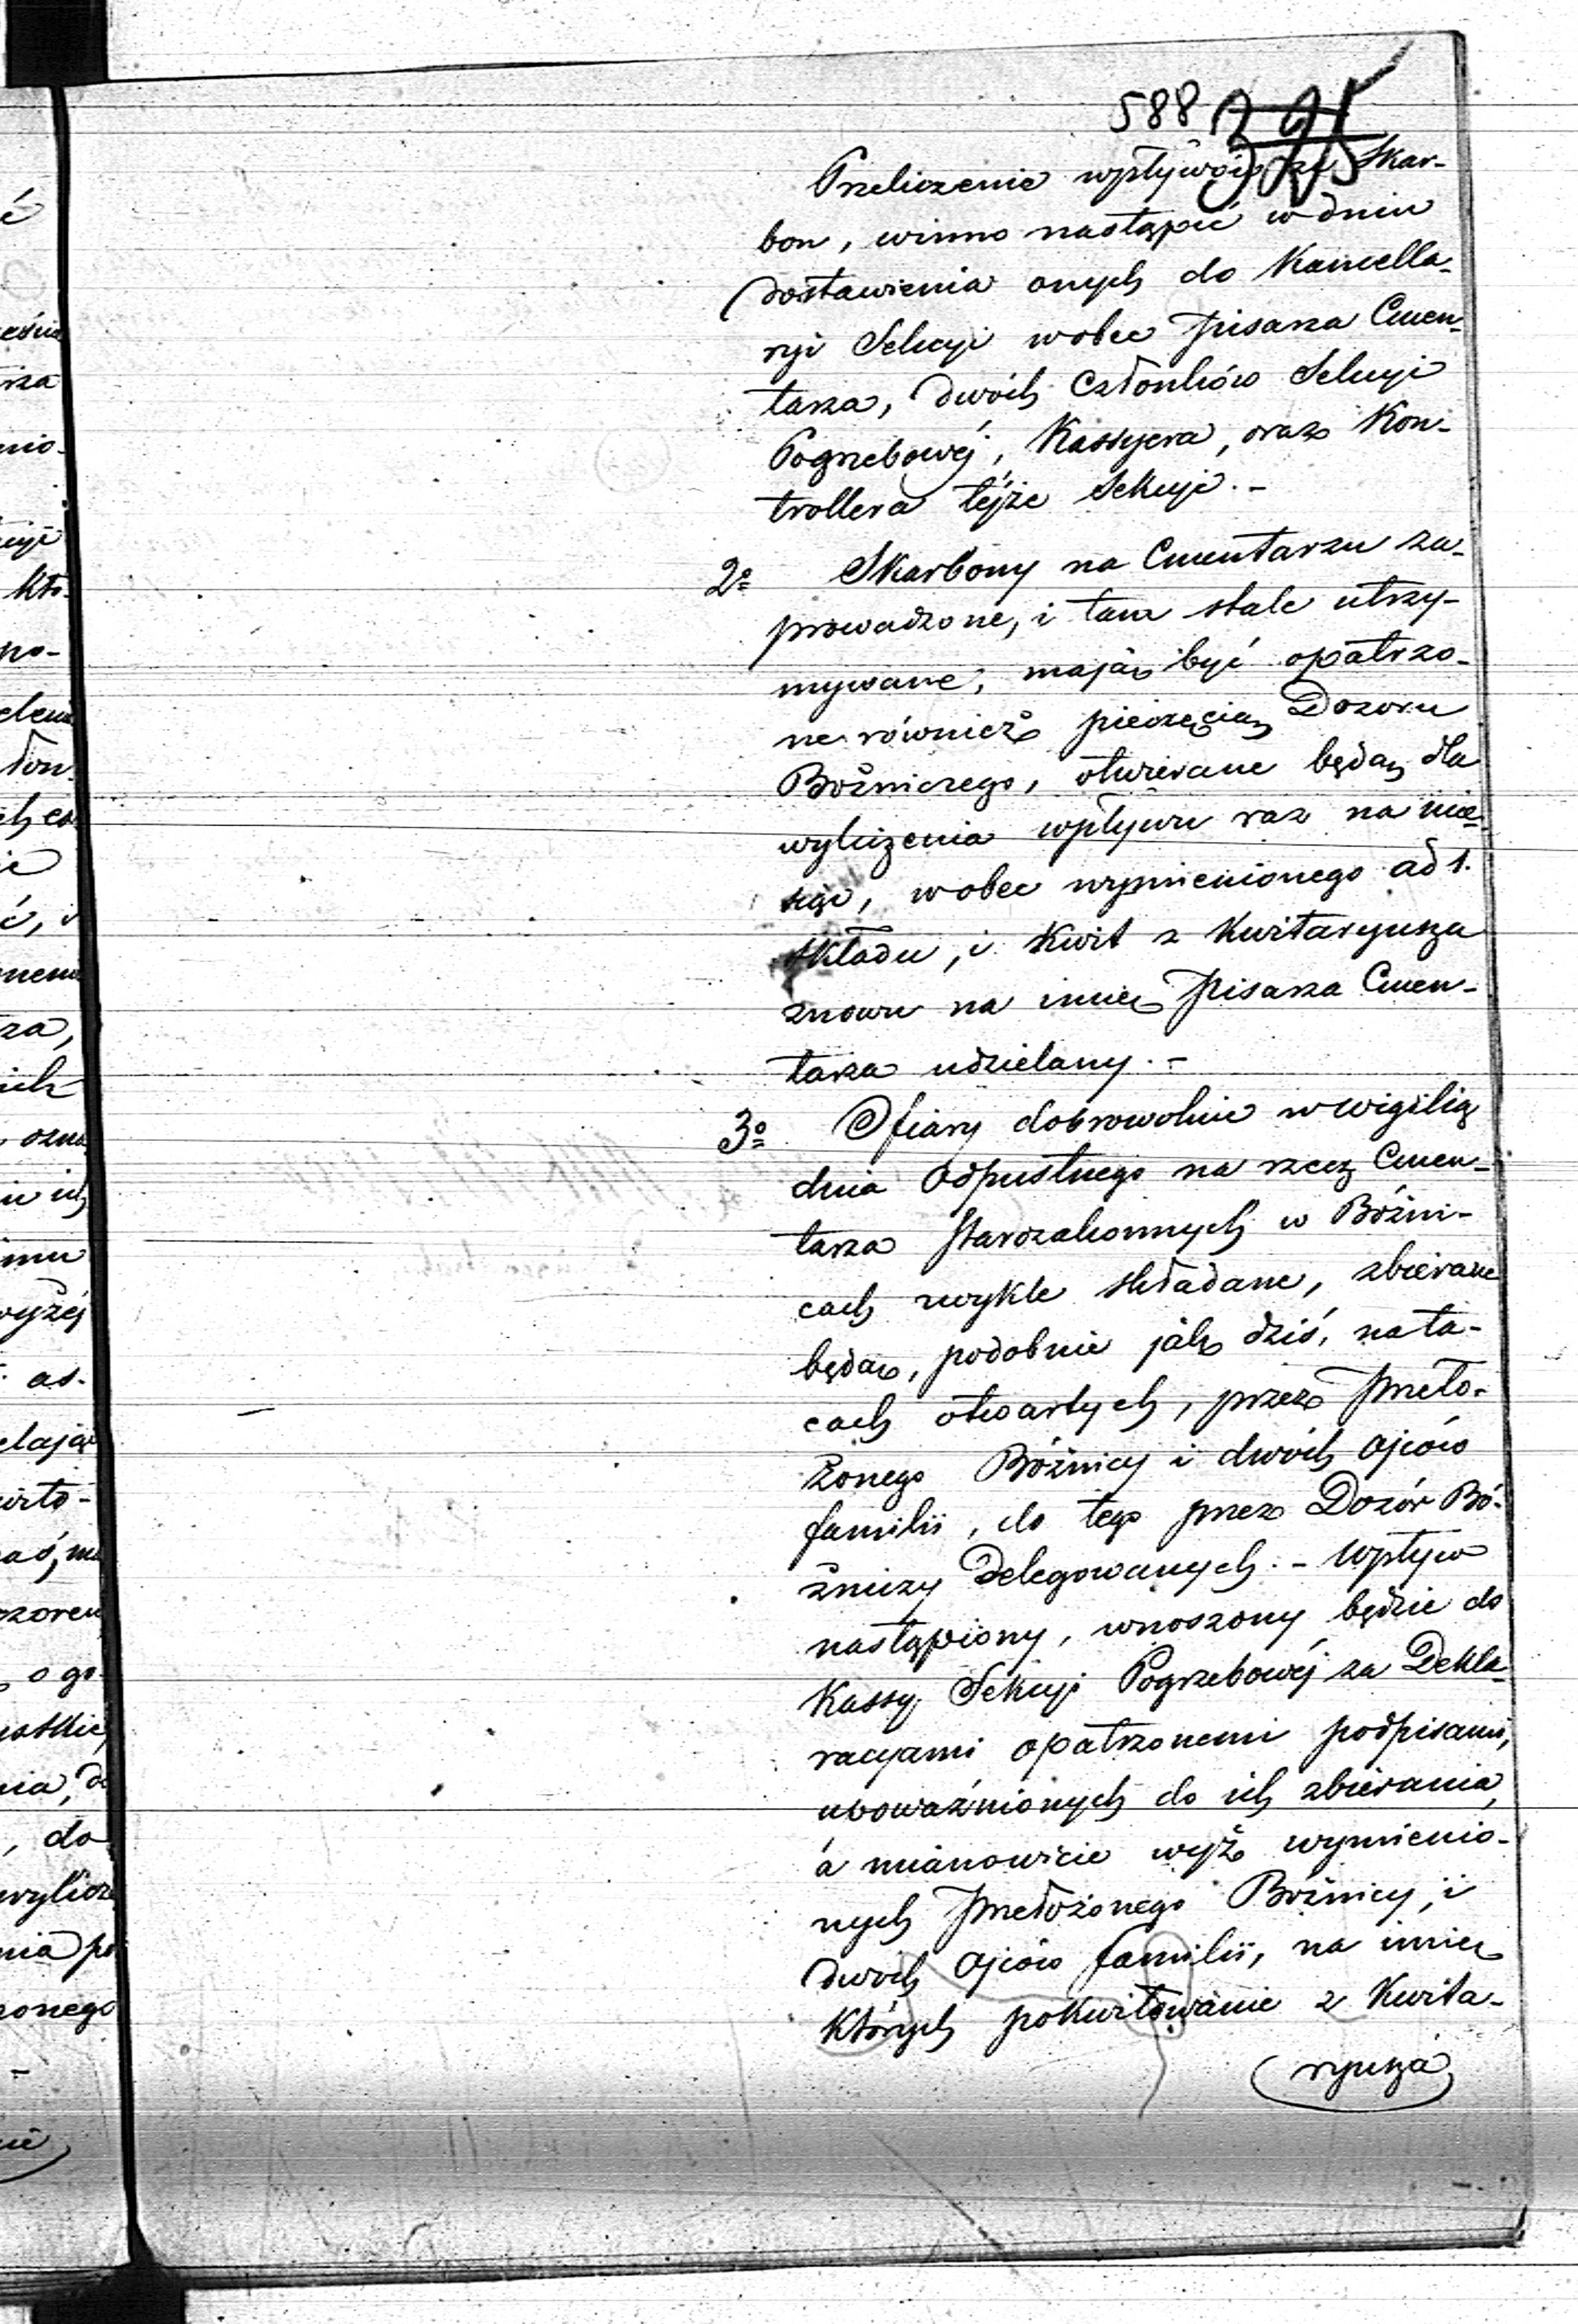 588 395
Przeliczenie wpływów ze Skar-
bon, winno nastąpić w dniu
dostawienia onych do Kancella-
ryi Sekcyi wobec Pisarza Cmen-
tarza, dwóch Członków Sekcyi
Pogrzebowéj, Kassyera, oraz Kon-
trollera téjże Sekcyi. -
2o Skarbony na Cmentarzu za-
prowadzone, i tam stale utrzy-
mywane, mają być opatrzo-
ne również pieczęcią Dozoru
Bożniczego, otwierane będą dla
wyliczenia wpływu raz na mie-
siąc, wobec wymienionego ad 1.
składu, i Kwit z Kwitaryusza
znowu na imię Pisarza Cmen-
tarza udzielany. -
3o Ofiary dobrowolnie w wigilię
dnia Odpustnego na rzecz Cmen-
tarza Starozakonnych w Bóżni-
cach zwykle składane, zbierane
będą, podobnie jak dziś, na ta-
cach otwartych, przez Przeło-
żonego Bóżnicy i dwóch Ojców
familii, do tego przez Dozór Bó-
żniczy Delegowanych. - Wpływ
nastąpiony, wnoszony będzie do
Kassy Sekcyi Pogrzebowéj za Dekla-
racyami opatrzonemi podpisami,
upoważnionych do ich zbierania,
a mianowicie wyż wymienio-
nych Przełożonego Bóżnicy, i
dwóch Ojców familii, na imię
których pokwitowanie z Kwita-
ryusza